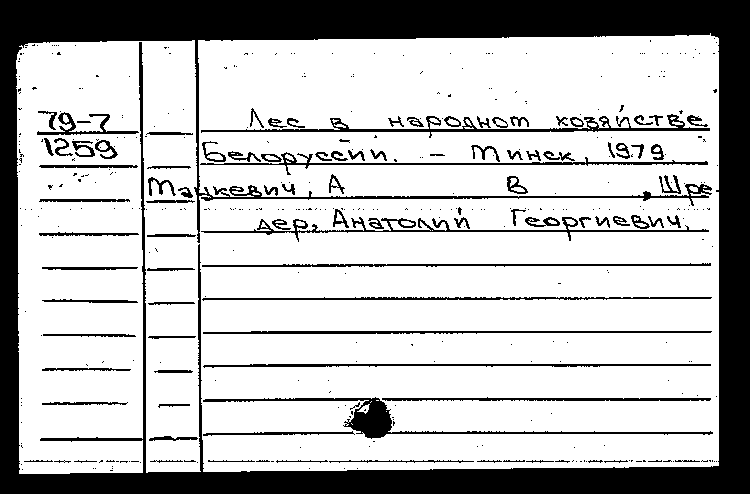 79-7 Лес в народном хозяйстве
1259 Белоруссии. – Минск, 1979
Мацкевич, А В , Шре-
дер, Анатолий Георгиевич.